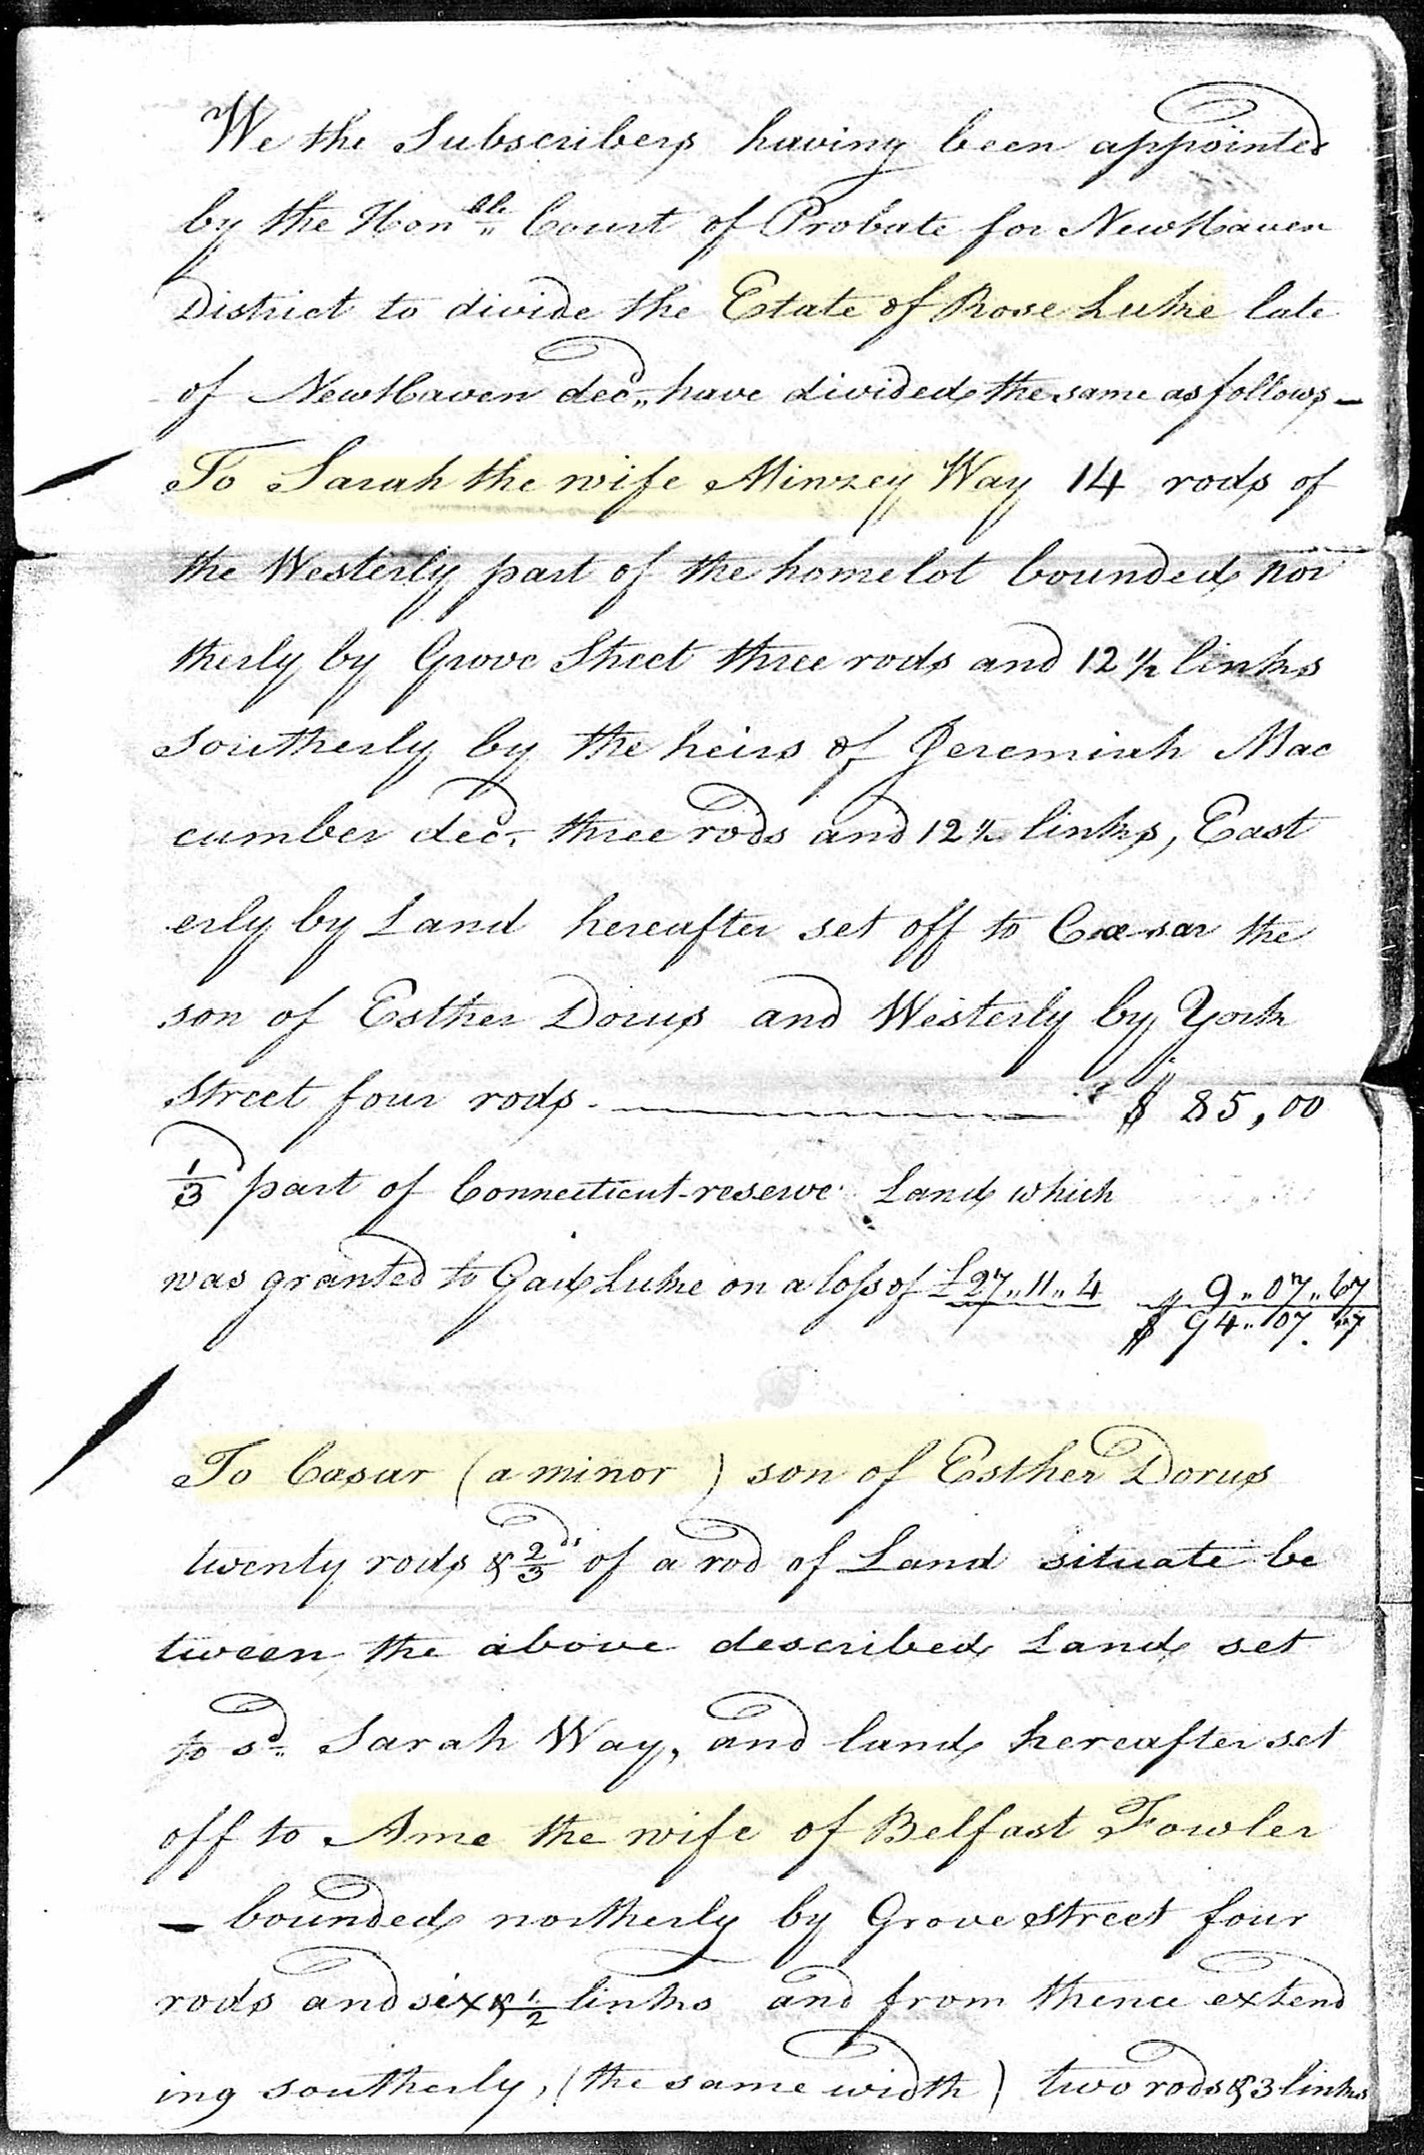 We the Subscribers having been appointed
by the Honble Court of Probate for New Haven
District to divide the Estate of Rose Luke late
of New Haven decd, have divided the same as follows –
To Sarah the wife Minzey Way 14 rods of
the Westerly part of the homelot bounded nor
therly by Grove Street three rods and 12 1/2 links
Southerly by the heirs of Jeremiah Mac
cumber decd. three rods and 12 1/2 links, East
erly by Land hereafter set off to Cæsar the
son of Esther Dorus and Westerly by York
street four rods. — $ 85,00
1/3 part of Connecticut-reserve Land which
was granted to Gad Luke on a loss of £27,,11,,4 $ 9,,07,,67
$ 94,,07.
To Cæsar (a minor) son of Esther Dorus
twenty rods & 2/3ds of a rod of Land situate be
tween the above described Land set
to sd. Sarah Way, and land hereafter set
off to Ame the wife of Belfast Fowler
– bounded northerly by Grove street four
rods and six & 1/2 links and from thence extend
ing southerly, (the same width) two rods & 3 links